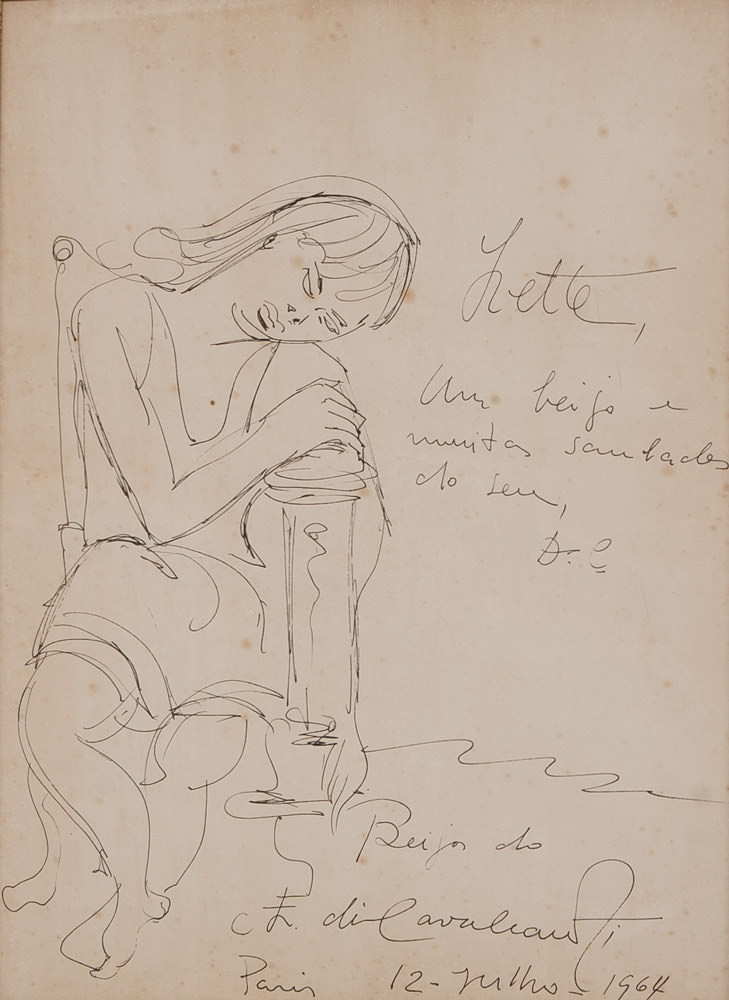 Ivette,
Um beijo e
muitas saudades
do seu,
D. C
Beijos do
E. di Cavalcanti
Paris 12-Julho-1964